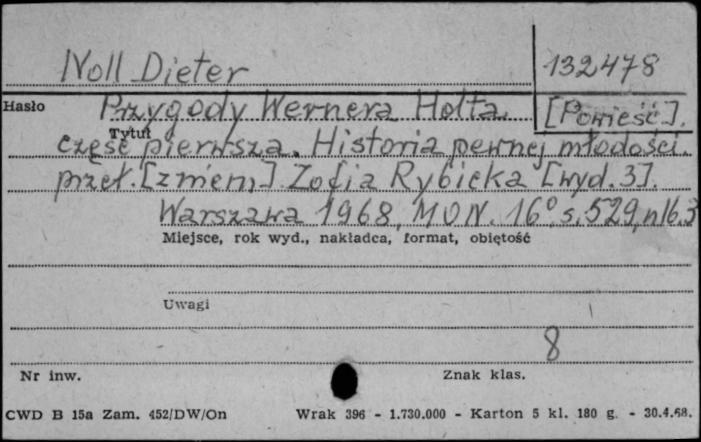 Noll Dieter
132478
Hasło Przygody Wernera Holta. [Powieść].
Tytuł
część pierwsza. Historia pewnej młodości.
przeł. [z niem.] Zofia Rybicka [wyd. 3].
Warszawa 1968, MON. 16°, s. 529, nlb. 3
Miejsce, rok wyd., nakładca, format, objętość
Uwagi
8
Nr inw. Znak klas.
CWD B 15a Zam. 452/DW/On Wrak 396 - 1.730.000 - Karton 5 kl. 180 g. - 30.4.68.